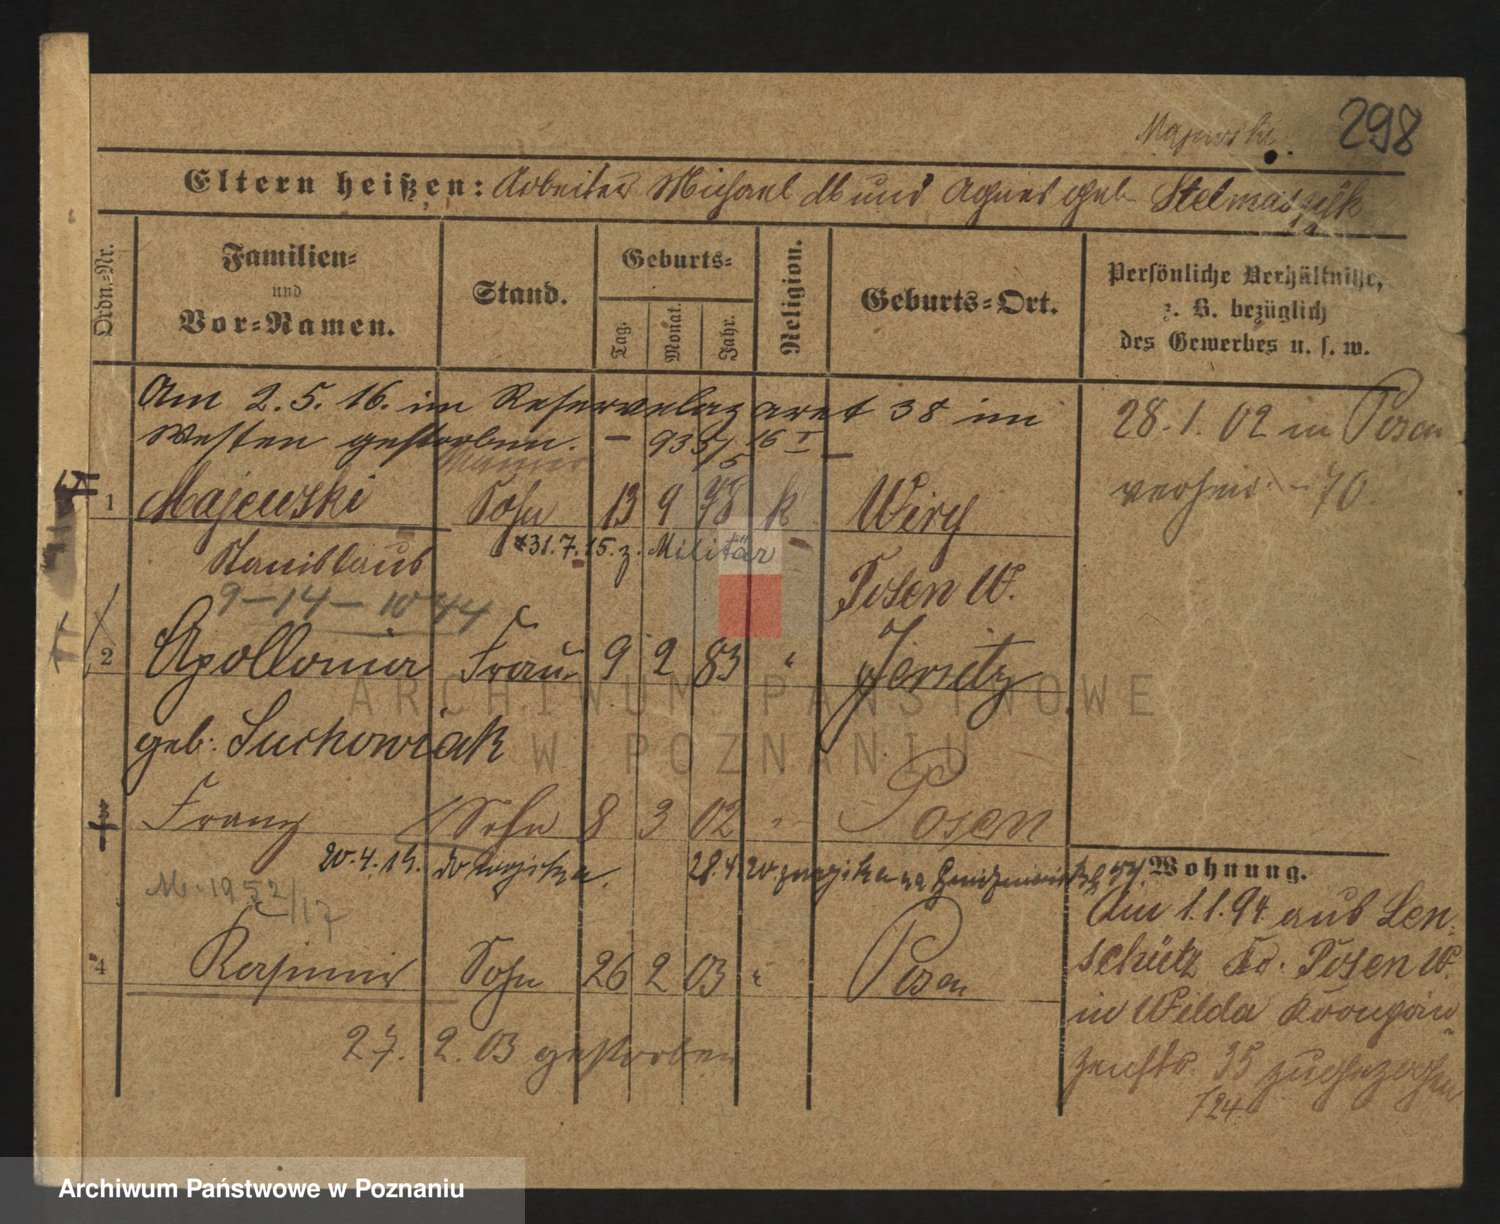 298
Majewski
Eltern heißen: Arbeiter Michael M und Agnes geb Stelmaszyk
Ordn.-Nr.
Familien-
und
Vor-Namen.
Stand.
Geburts-
Tag.
Monat.
Jahr.
Religion.
Geburts-Ort.
Persönliche Verhältnisse,
z. B. bezüglich
des Gewerbes u. s. w.
Am 2.5.16. im Reservelazaret 38 im
Westen gestorben. — 935/5 16 I —
28.1.02 in Posen
verheir. – 70.
Maurer
1 Majewski Sohn 13 9 78 k Wiry
Stanislaus *31.7.15. z. Militär Posen W.
9–14–1044
2 Apollonia Frau 9 2 83 " Jersitz
geb. Suchowiak
3 Franz Sohn 8 3 02 " Posen
20.4.19. do wojska. 28.4.20 z wojska na
M. 1952/17
4 Kasimir Sohn 26 2 03 " Posen
27. 2. 03 gestorben
Wohnung.
Am 1.1.94 aus Len-
schütz Kr. Posen W.
in Wilda Kronprin-
zenstr. 35 zugezogen
124
ARCHIWUM PAŃSTWOWE
W POZNANIU
Archiwum Państwowe w Poznaniu